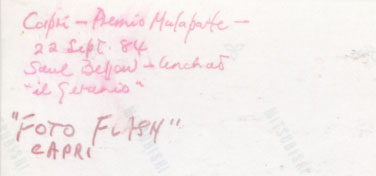 Capri - Premio Malaparte -
22 Sept. 84
Saul Bellow - lunch at
"il Geranio"
"FOTO FLASH"
CAPRI
MITSUBISHI